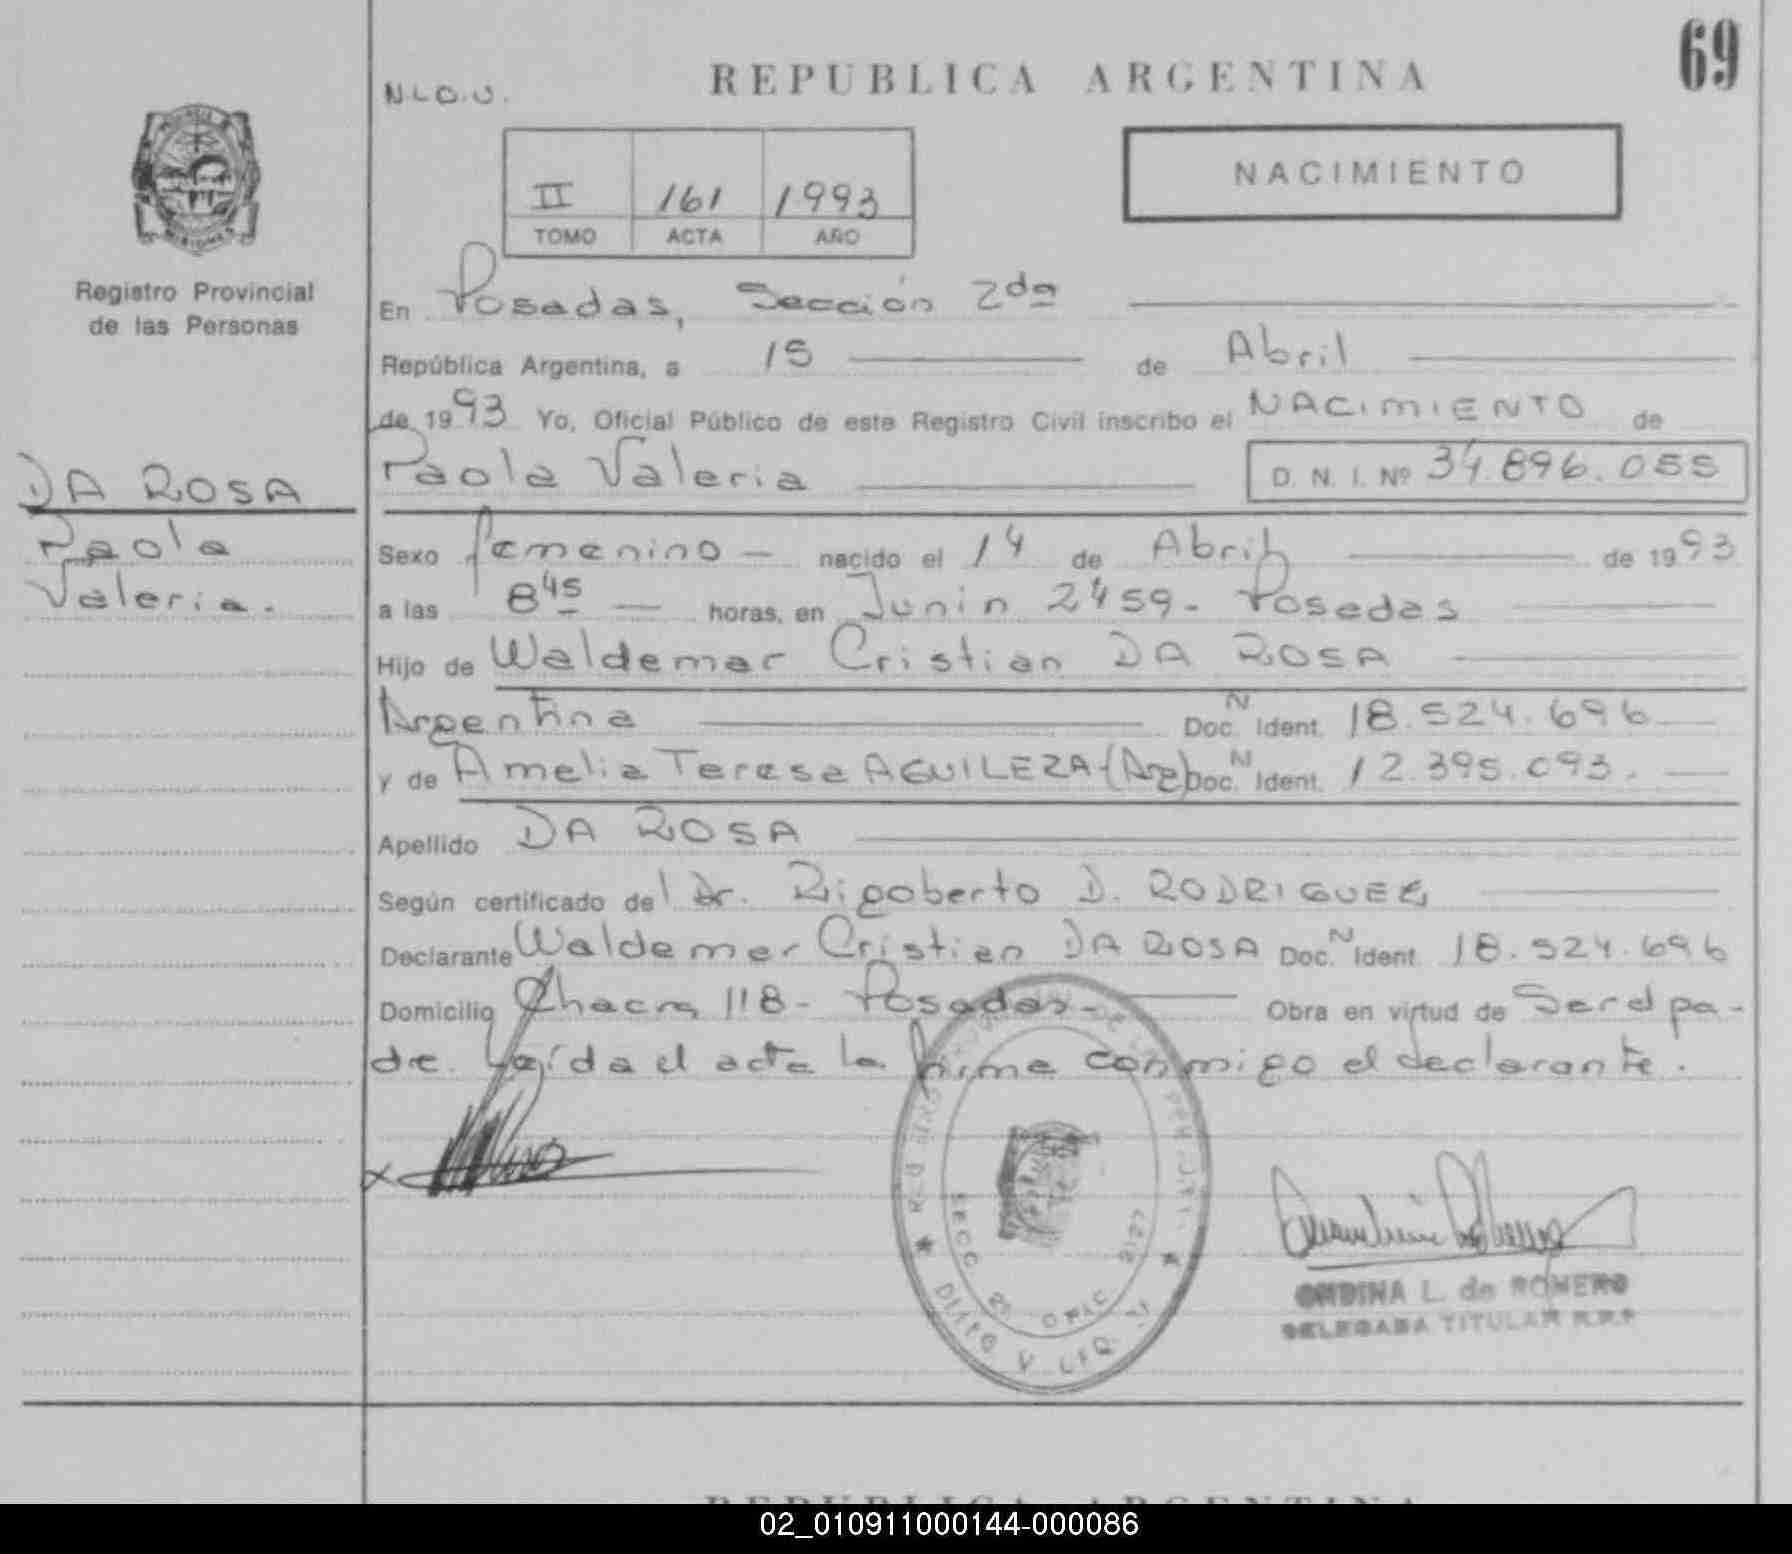 69
REPUBLICA ARGENTINA
N.L.O.U.
NACIMIENTO
II 161 1993
TOMO ACTA AÑO
Registro Provincial
de las Personas
En Posadas, Sección 2da
República Argentina, a 15 de Abril
de 1993 Yo, Oficial Público de este Registro Civil inscribo el NACIMIENTO de
Paola Valeria D. N. I. Nº 34.896.055
DA ROSA
Paola
Valeria.
Sexo femenino - nacido el 14 de Abril de 1993
a las 8 45 horas, en Junin 2459 - Posadas
Hijo de Waldemar Cristian DA ROSA
Argentina Doc. N Ident. 18.524.696
y de Amelia Teresa AGUILERA (Arg) Doc. N Ident. 12.395.093.
Apellido DA ROSA
Según certificado del Dr. Rigoberto D. RODRIGUEZ
Declarante Waldemar Cristian DA ROSA Doc. N Ident. 18.524.696
Domicilio Chacra 118 - Posadas - Obra en virtud de Ser el pa-
dre. Leída el acta la firma conmigo el declarante.
SECC 2º OFIC
ONDINA L. de ROMERO
DELEGADA TITULAR R.R.P
02_010911000144-000086